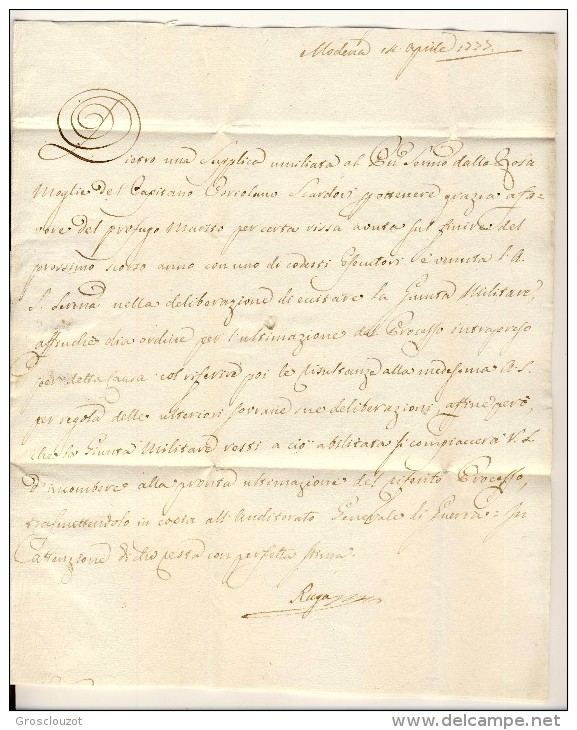 Modena 14 Aprile 1777.
Dietro una Supplica umiliata al Pñ Sermo dalla Rosa
Moglie del Capitano Ercolano Scardovi p ottenere grazia a fa-
vore del profugo Marito per certa rissa avuta sul finire del
prossimo scorso anno con uno di codesti Esecutori è venuta l'A.
S. Serma nella deliberazione di eccitare la Giunta Militare,
affinchè dia ordine per l'ultimazione del Processo intrapreso
per detta causa col riferire poi le risultanze alla medesima A. S.
per regola delle ulteriori sovrane sue deliberazioni, affine però,
che la Giunta Militare resti a ciò abilitata si compiacerà V. S.
d'incombere alla pronta ultimazione del riferito Processo,
trasmettendolo in copia all'Auditorato Generale di Guerra= In
attenzione di che resto con perfetta stima.
Ruga
Grosclouzot
delcampe.net